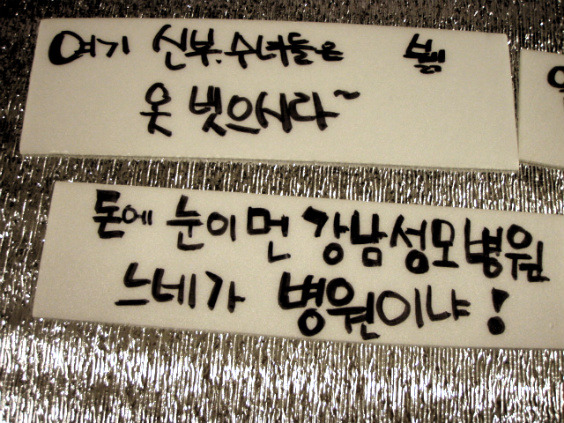 여기 신부.수녀들은
옷 벳으시라~
돈에 눈이 먼 강남성모병원
느네가 병원이냐!